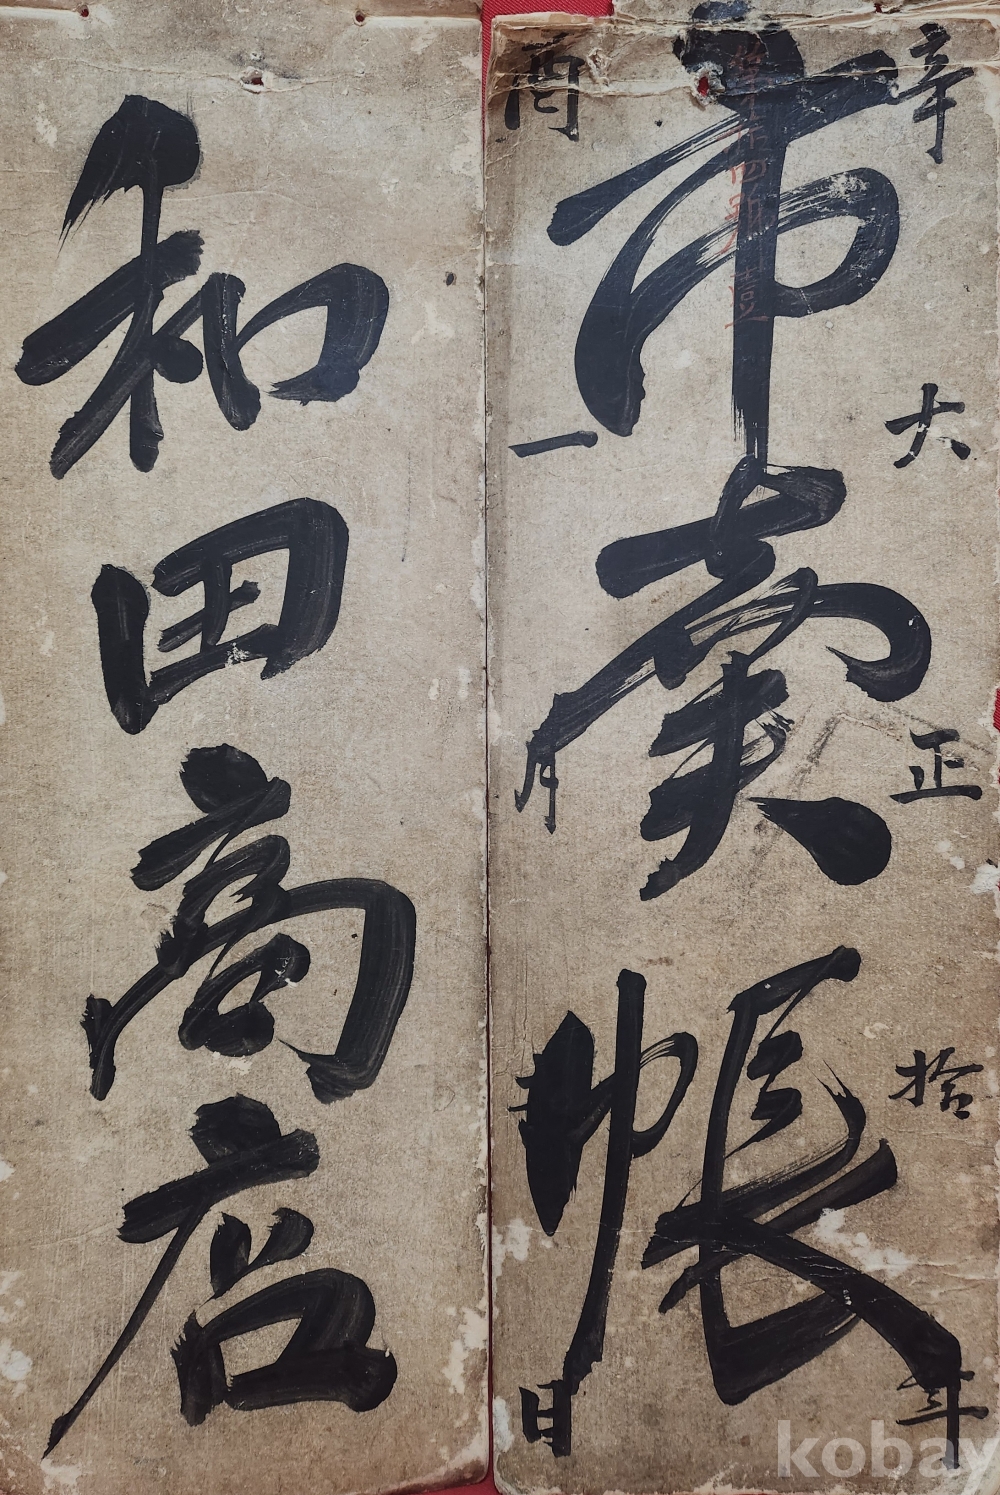 辛大正拾年
市賣帳
酉一月日
和田商店
kobay